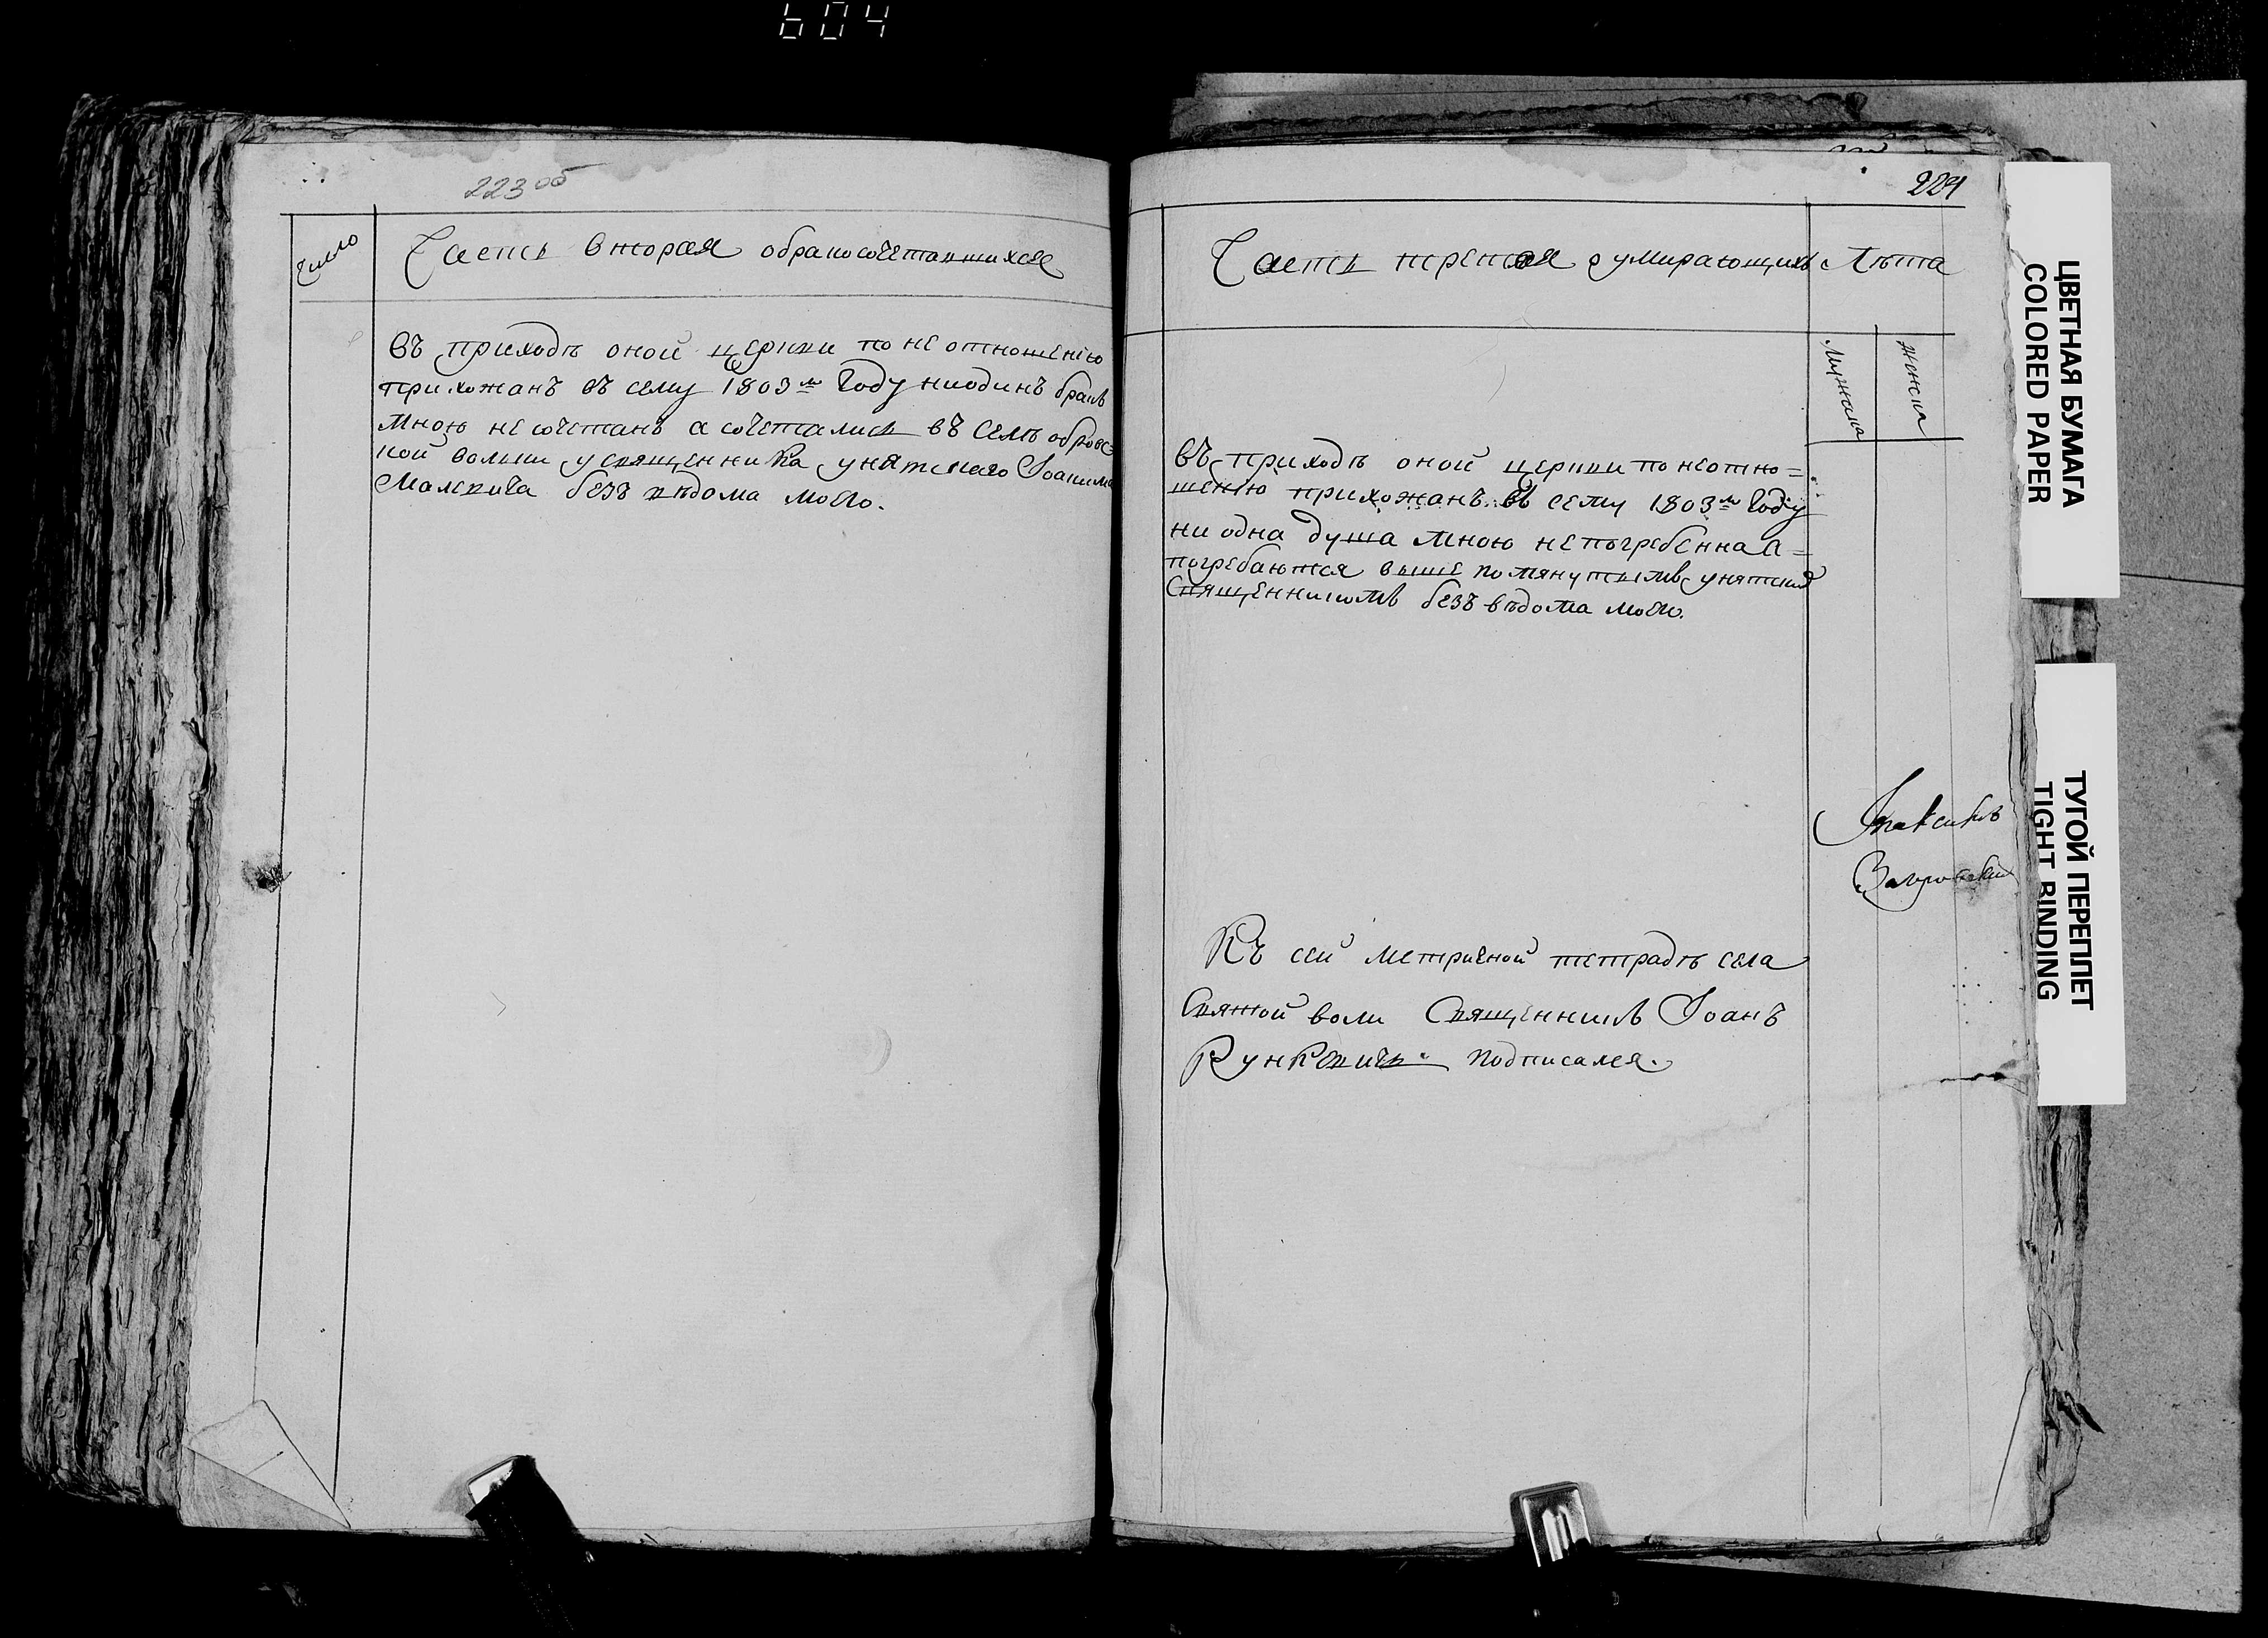 604
223об
Число
Часть вторая обракосочетавшихся
Въ приходѣ оной церкви по не отношенію
прихожанъ въ сему 1803м году ниодинъ бракъ
мною не сочетанъ а сочетались въ селѣ обровс=
кой вольки у священника унятского Іоакима
Малевича безъ вѣдома моего.
224
Часть третая о умирающихъ Лѣта
Мужска
женска
Въ приходѣ оной церкви по неотно=
шенію прихожанъ въ сему 1803м году
ни одна душа мною непогребенна а=
погребаются выше помянутымъ унятским
Священникомъ безъ вѣдома моего.
Къ сей метричной тетрадѣ села
Святой воли Священникъ Іоанъ
Рункевичь подписался.
ЦВЕТНАЯ БУМАГА
COLORED PAPER
ТУГОЙ ПЕРЕПЛЕТ
TIGHT BINDING